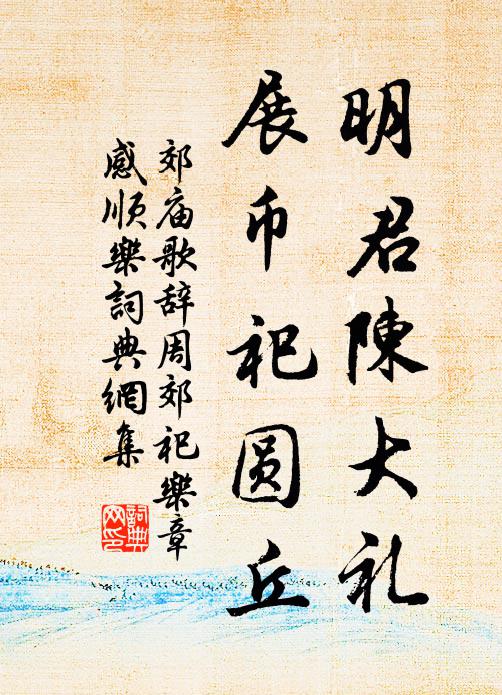 明君陳大礼
展币祀圆丘
郊庙歌辞周郊祀樂章
感順樂詞典網集
詞典网印